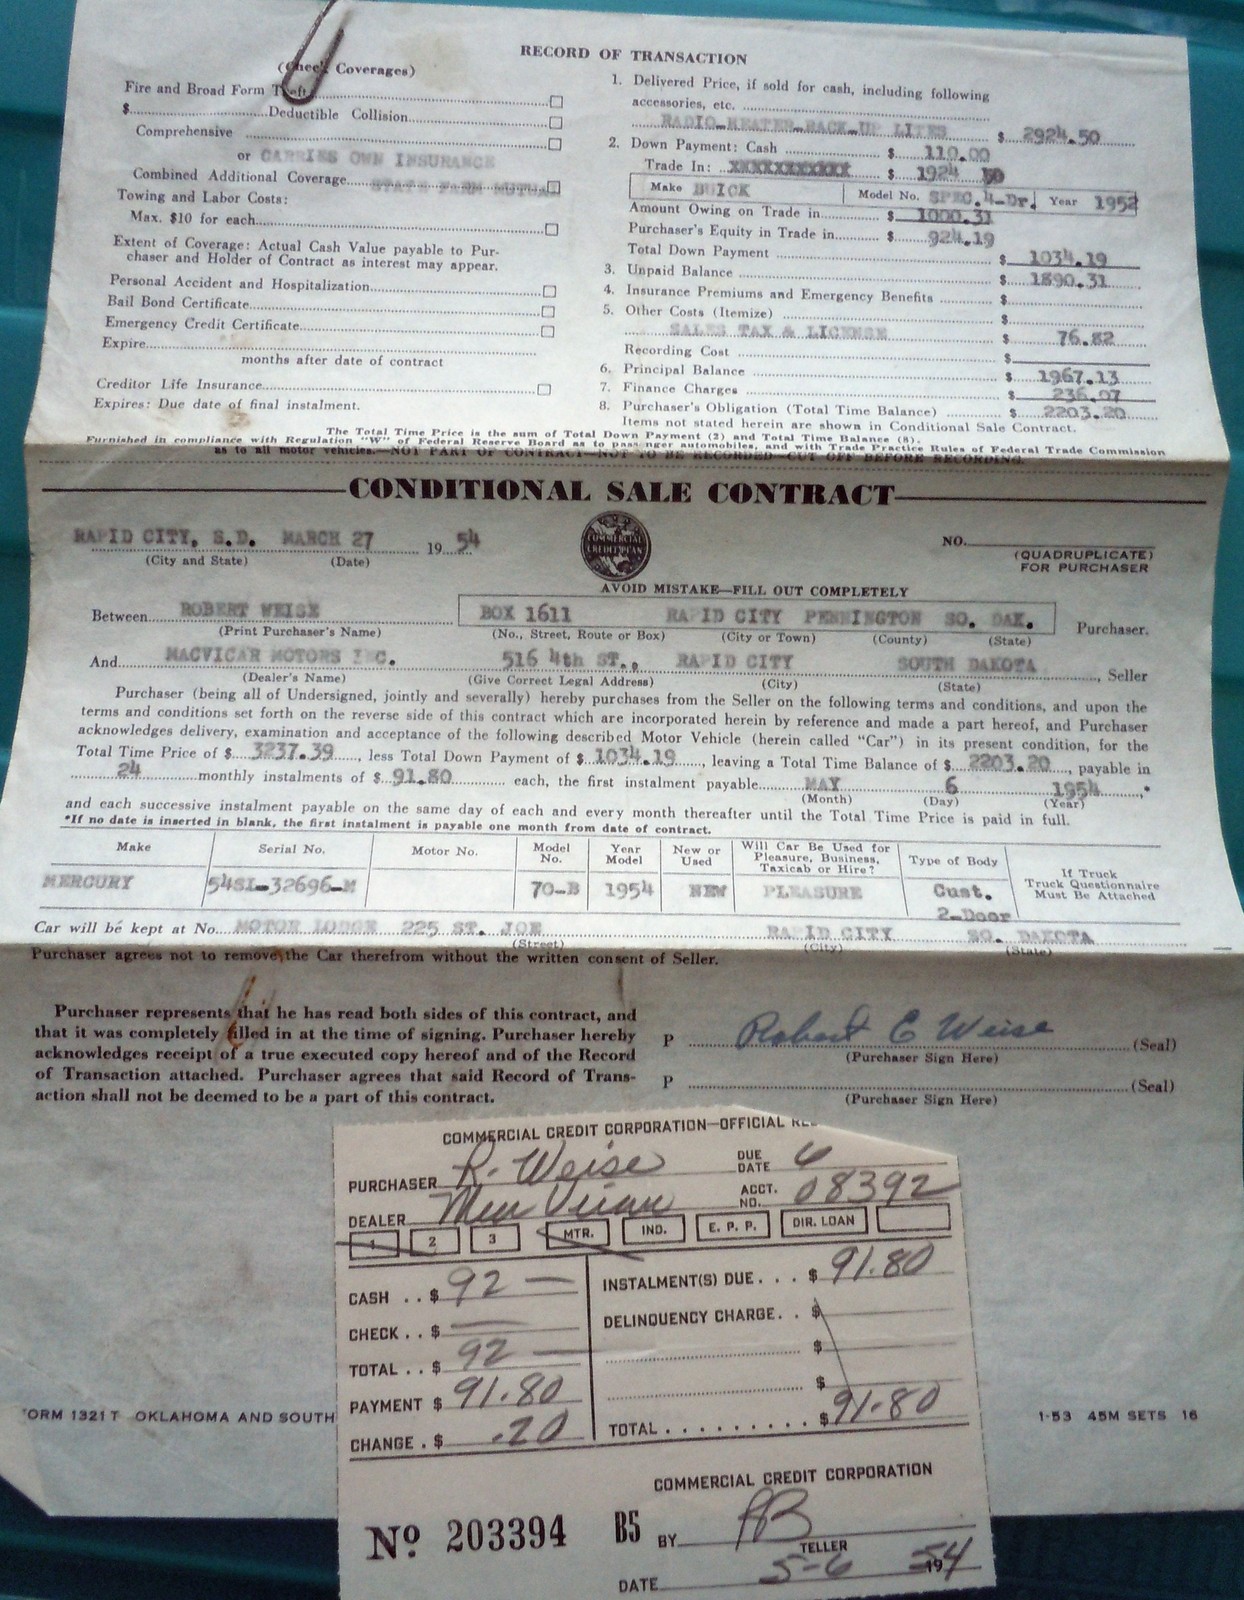 RECORD OF TRANSACTION
(Check Coverages)
Fire and Broad Form Theft
$ Deductible Collision
Comprehensive
or CARRIES OWN INSURANCE
Combined Additional Coverage STATE FARM MUTUAL
Towing and Labor Costs:
Max. $10 for each
Extent of Coverage: Actual Cash Value payable to Pur-
chaser and Holder of Contract as interest may appear.
Personal Accident and Hospitalization
Bail Bond Certificate
Emergency Credit Certificate
Expire
months after date of contract
Creditor Life Insurance
Expires: Due date of final instalment.
1. Delivered Price, if sold for cash, including following
accessories, etc.
RADIO-HEATER-BACK-UP LITES $ 2924.50
2. Down Payment: Cash $ 110.00
Trade In: XXXXXXXXXXX $ 1924 50
Make BUICK Model No. SPEC. 4-Dr. Year 1952
Amount Owing on Trade in $ 1000.31
Purchaser's Equity in Trade in $ 924.19
Total Down Payment $ 1034.19
3. Unpaid Balance $ 1890.31
4. Insurance Premiums and Emergency Benefits $
5. Other Costs (Itemize) $
SALES TAX & LICENSE $ 76.82
Recording Cost $
6. Principal Balance $ 1967.13
7. Finance Charges $ 236.07
8. Purchaser's Obligation (Total Time Balance) $ 2203.20
Items not stated herein are shown in Conditional Sale Contract.
The Total Time Price is the sum of Total Down Payment (2) and Total Time Balance (8).
Furnished in compliance with Regulation "W" of Federal Reserve Board as to passenger automobiles, and with Trade Practice Rules of Federal Trade Commission
as to all motor vehicles.—NOT PART OF CONTRACT—NOT TO BE RECORDED—CUT OFF BEFORE RECORDING.
CONDITIONAL SALE CONTRACT
RAPID CITY, S.D. MARCH 27 19 54
(City and State) (Date)
COMMERCIAL CREDIT PLAN
NO.
(QUADRUPLICATE)
FOR PURCHASER
AVOID MISTAKE—FILL OUT COMPLETELY
Between ROBERT WEISE BOX 1611 RAPID CITY PENNINGTON SO. DAK. Purchaser.
(Print Purchaser's Name) (No., Street, Route or Box) (City or Town) (County) (State)
And MACVICAR MOTORS INC. 516 4th ST., RAPID CITY SOUTH DAKOTA, Seller
(Dealer's Name) (Give Correct Legal Address) (City) (State)
Purchaser (being all of Undersigned, jointly and severally) hereby purchases from the Seller on the following terms and conditions, and upon the
terms and conditions set forth on the reverse side of this contract which are incorporated herein by reference and made a part hereof, and Purchaser
acknowledges delivery, examination and acceptance of the following described Motor Vehicle (herein called "Car") in its present condition, for the
Total Time Price of $ 3237.39, less Total Down Payment of $ 1034.19, leaving a Total Time Balance of $ 2203.20, payable in
24 monthly instalments of $ 91.80 each, the first instalment payable MAY 6 1954.*
(Month) (Day) (Year)
and each successive instalment payable on the same day of each and every month thereafter until the Total Time Price is paid in full.
*If no date is inserted in blank, the first instalment is payable one month from date of contract.
Make Serial No. Motor No. Model No. Year Model New or Used Will Car Be Used for Pleasure, Business, Taxicab or Hire? Type of Body If Truck Truck Questionnaire Must Be Attached
MERCURY 54SL-32696-M 70-B 1954 NEW PLEASURE Cust. 2-Door
Car will be kept at No. MOTOR LODGE 225 ST. JOE RAPID CITY SO. DAKOTA
(Street) (City) (State)
Purchaser agrees not to remove the Car therefrom without the written consent of Seller.
Purchaser represents that he has read both sides of this contract, and
that it was completely filled in at the time of signing. Purchaser hereby
acknowledges receipt of a true executed copy hereof and of the Record
of Transaction attached. Purchaser agrees that said Record of Trans-
action shall not be deemed to be a part of this contract.
P Robert E Weise (Seal)
(Purchaser Sign Here)
P (Seal)
(Purchaser Sign Here)
COMMERCIAL CREDIT CORPORATION—OFFICIAL
PURCHASER R. Weise DUE DATE 6
DEALER ACCT. NO. 08392
1 2 3 MTR. IND. E. P. P. DIR. LOAN
CASH . . $ 92 —
CHECK . . $ —
TOTAL . . $ 92 —
PAYMENT $ 91.80
CHANGE . $ .20
INSTALMENT(S) DUE . . . $ 91.80
DELINQUENCY CHARGE . . $
$
$
TOTAL . . . . . . . . . $ 91.80
COMMERCIAL CREDIT CORPORATION
No 203394 B5 BY
TELLER
DATE 5-6 1954
ORM 1321 T OKLAHOMA AND SOUTH
1-53 45M SETS 16